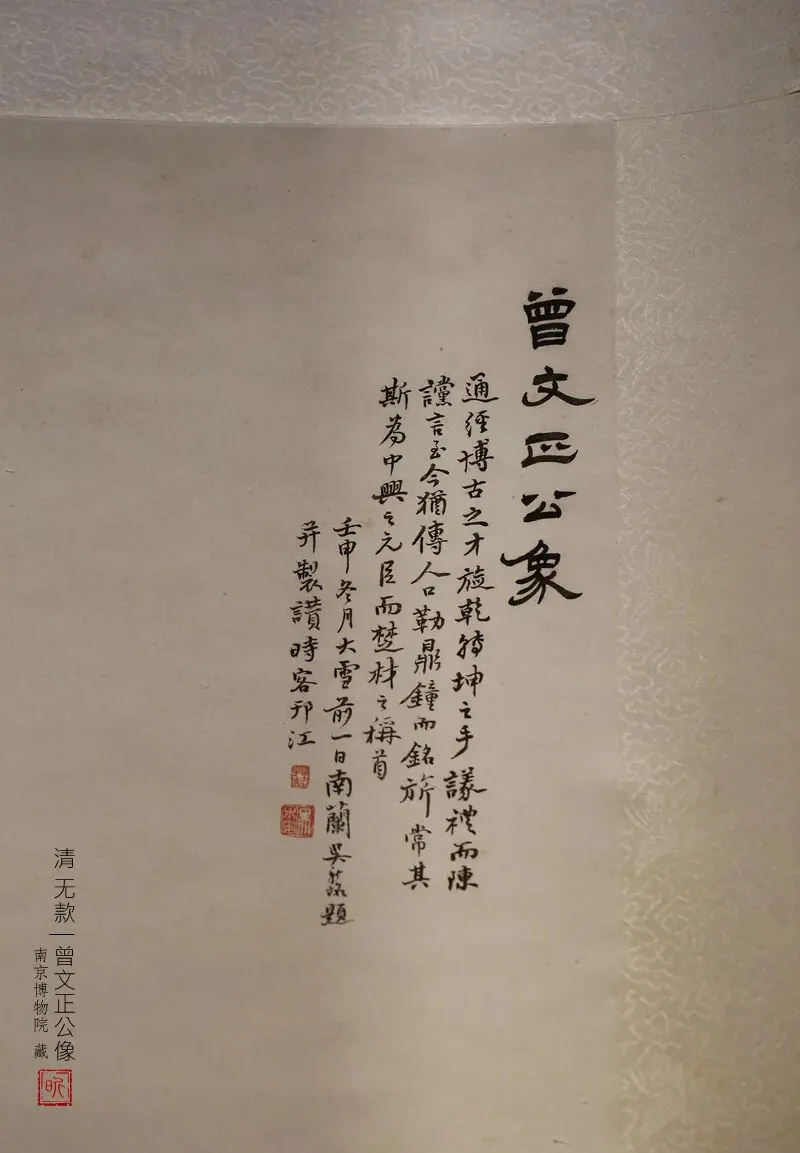 曾文正公象
通經博古之才旋乾轉坤之手議禮而陳
讜言至今猶傳人口勒鼎鐘而銘旂常其
斯為中興之元臣而楚材之稱首
壬申冬月大雪前一日南蘭吳題
并製讚時客邗江
清 无款|曾文正公像
南京博物院 藏